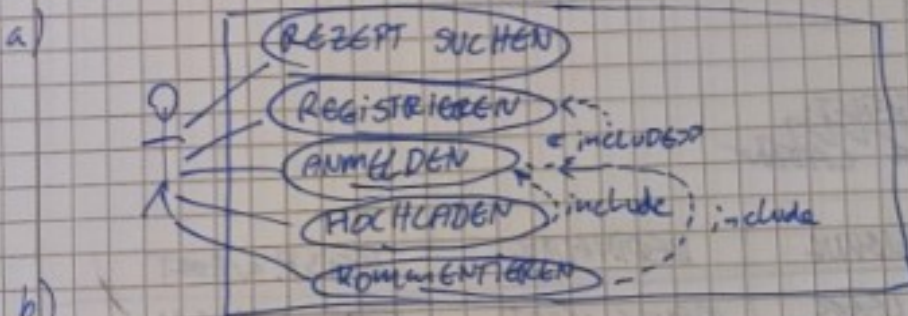 a)
REZEPT SUCHEN
REGISTRIEREN
<include>>
ANMELDEN
HOCHLADEN
include
include
KOMMENTIEREN
b)